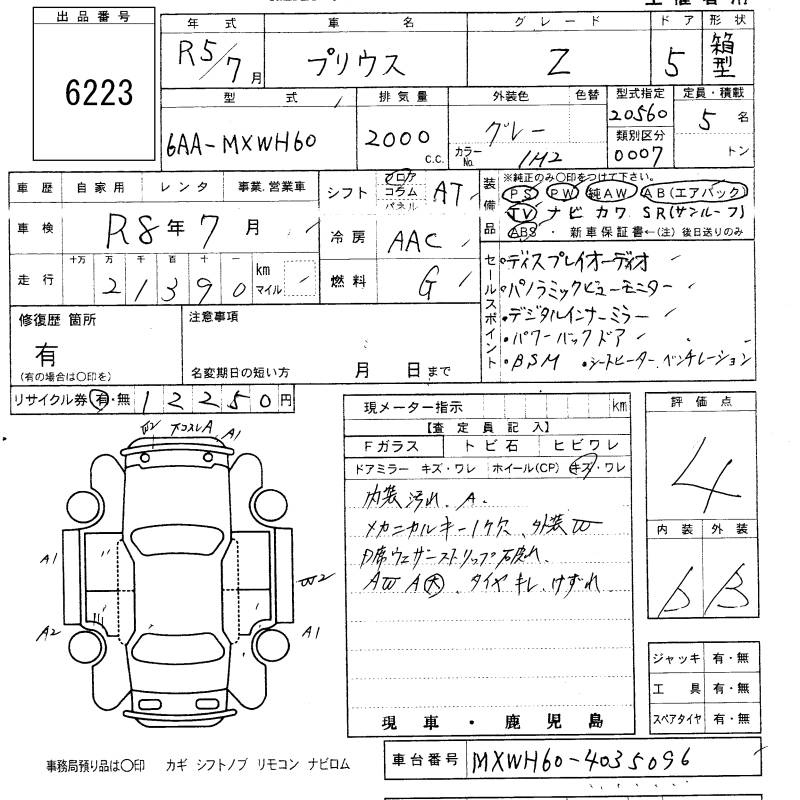 出品番号
6223
年式 車名 グレード ドア 形状
R5/7月 プリウス Z 5 箱型
型式 排気量 外装色 色替 型式指定 定員・積載
6AA-MXWH60 2000 C.C. グレー カラーNo. 1H2 20560 5名
類別区分 0007 トン
車歴 自家用 レンタ 事業、営業車
シフト フロア コラム パネル AT
装備品 ※純正のみ〇印をつけて下さい。
PS PW 純AW AB(エアバック)
TV ナビ カワ SR(サンルーフ)
ABS ・ 新車保証書←(注)後日送りのみ
車検 R8年7月
冷房 AAC
走行 十万 万 千 百 十 一
21390 km マイル
燃料 G
セールスポイント
・ディスプレイオーディオ
・パノラミックビューモニター
・デジタルインナーミラー
・パワーバックドア
・BSM ・シートヒーター、ベンチレーション
修復歴 箇所
有
(有の場合は〇印を)
注意事項
名変期日の短い方 月 日まで
リサイクル券 有・無 12250円
現メーター指示 km
【査定員記入】
Fガラス トビ石 ヒビワレ
ドアミラー キズ・ワレ ホイール(CP) キズ・ワレ
内装汚れ、A.
メカニカルキー1ケ欠、外装W
D席ウェザーストリップ破れ
AW A大、タイヤキレ、けずれ
現車・鹿児島
評価点
4
内装 外装
B
W2 下コスレA A1
A1
W2
A2
A1
ジャッキ 有・無
工具 有・無
スペアタイヤ 有・無
事務局預り品は〇印 カギ シフトノブ リモコン ナビロム
車台番号 MXWH60-4035096